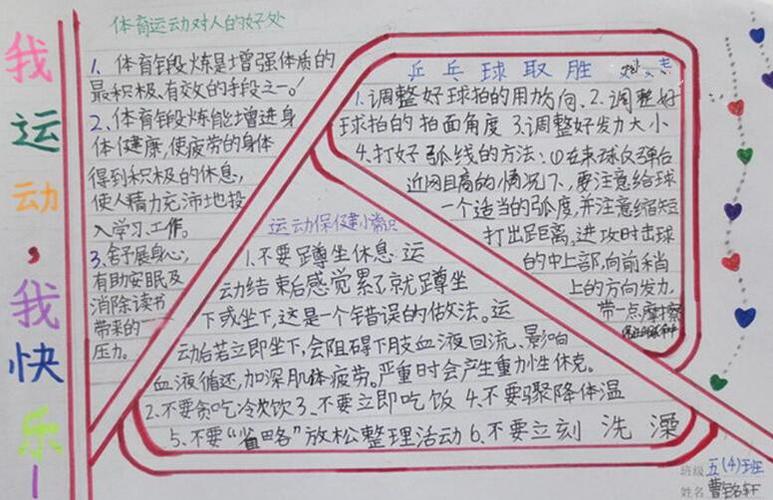 我运动，我快乐！
体育运动对人的好处
1、体育锻炼是增强体质的
最积极、有效的手段之一！
2、体育锻炼能增进身
体健康，使疲劳的身体
得到积极的休息，
使人精力充沛地投
入学习、工作。
3、舒展身心，
有助安眠及
消除读书
带来的
压力。
乒乓球取胜
1、调整好球拍的用力方向、2、调整好
球拍的拍面角度 3、调整好发力大小
4、打好弧线的方法：①在来球反弹后
近网且高的情况下，要注意给球
一个适当的弧度，并注意缩短
打出距离，进攻时击球
的中上部，向前稍
上的方向发力，
带一点摩擦
运动保健小常识
1、不要蹲坐休息 运
动结束后感觉累了就蹲坐
下或坐下，这是一个错误的做法。运
动后若立即坐下，会阻碍下肢血液回流、影响
血液循还，加深肌体疲劳。严重时会产生重力性休克。
2、不要贪吃冷饮 3、不要立即吃饭 4、不要骤降体温
5、不要“省略”放松整理活动 6、不要立刻 洗 澡
班级 五(4)班
姓名 曹铭轩